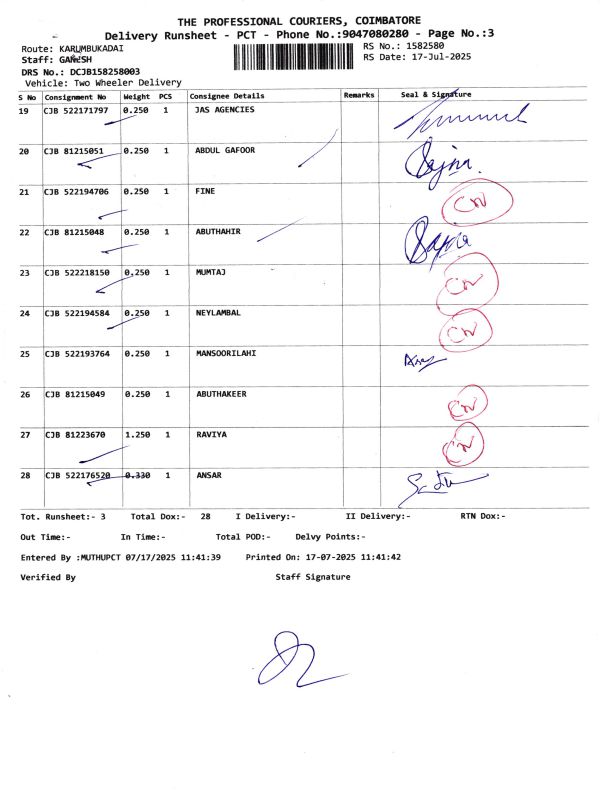 THE PROFESSIONAL COURIERS, COIMBATORE
Delivery Runsheet - PCT - Phone No.:9047080280 - Page No.:3
Route: KARUMBUKADAI
RS No.: 1582580
Staff: GANESH
RS Date: 17-Jul-2025
DRS No.: DCJB158258003
Vehicle: Two Wheeler Delivery
S No Consignment No Weight PCS Consignee Details Remarks Seal & Signature
19 CJB 522171797 0.250 1 JAS AGENCIES
20 CJB 81215051 0.250 1 ABDUL GAFOOR Sajna.
21 CJB 522194706 0.250 1 FINE CN
22 CJB 81215048 0.250 1 ABUTHAHIR Sajna
23 CJB 522218150 0.250 1 MUMTAJ CN
24 CJB 522194584 0.250 1 NEYLAMBAL CN
25 CJB 522193764 0.250 1 MANSOORILAHI
26 CJB 81215049 0.250 1 ABUTHAKEER CN
27 CJB 81223670 1.250 1 RAVIYA CN
28 CJB 522176520 0.330 1 ANSAR
Tot. Runsheet:- 3 Total Dox:- 28 I Delivery:- II Delivery:- RTN Dox:-
Out Time:- In Time:- Total POD:- Delvy Points:-
Entered By :MUTHUPCT 07/17/2025 11:41:39 Printed On: 17-07-2025 11:41:42
Verified By Staff Signature